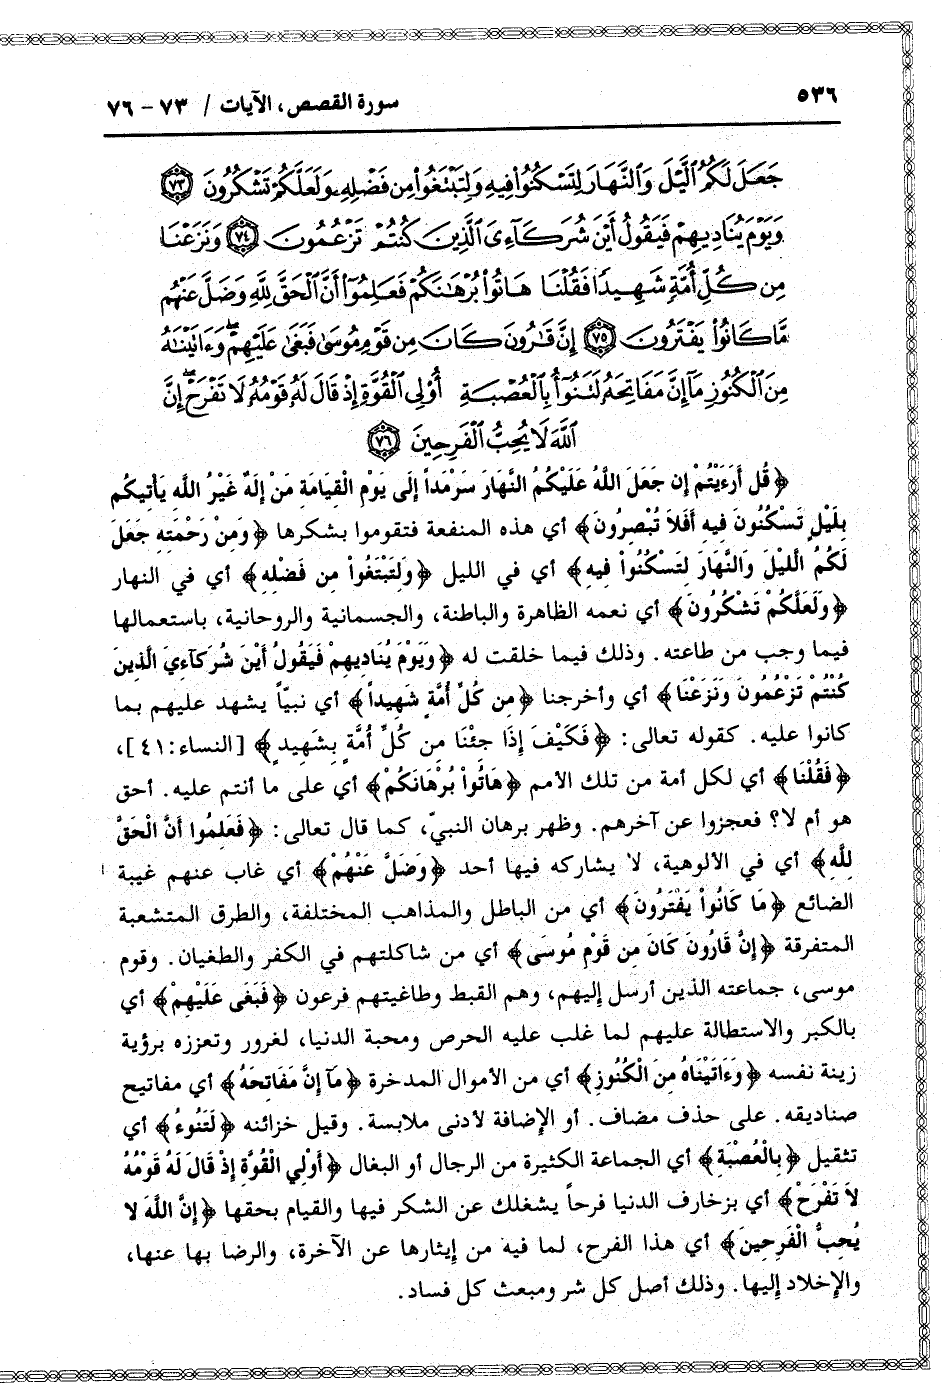 ٥٣٦
سورة القصص، الآيات / ٧٣ - ٧٦
جَعَلَ لَكُمُ ٱلَّيْلَ وَٱلنَّهَارَ لِتَسْكُنُوا۟ فِيهِ وَلِتَبْتَغُوا۟ مِن فَضْلِهِۦ وَلَعَلَّكُمْ تَشْكُرُونَ ٧٣
وَيَوْمَ يُنَادِيهِمْ فَيَقُولُ أَيْنَ شُرَكَآءِىَ ٱلَّذِينَ كُنتُمْ تَزْعُمُونَ ٧٤ وَنَزَعْنَا
مِن كُلِّ أُمَّةٍ شَهِيدًا فَقُلْنَا هَاتُوا۟ بُرْهَٰنَكُمْ فَعَلِمُوٓا۟ أَنَّ ٱلْحَقَّ لِلَّهِ وَضَلَّ عَنْهُم
مَّا كَانُوا۟ يَفْتَرُونَ ٧٥ إِنَّ قَٰرُونَ كَانَ مِن قَوْمِ مُوسَىٰ فَبَغَىٰ عَلَيْهِمْ ۖ وَءَاتَيْنَٰهُ
مِنَ ٱلْكُنُوزِ مَآ إِنَّ مَفَاتِحَهُۥ لَتَنُوٓأُ بِٱلْعُصْبَةِ أُو۟لِى ٱلْقُوَّةِ إِذْ قَالَ لَهُۥ قَوْمُهُۥ لَا تَفْرَحْ ۖ إِنَّ
ٱللَّهَ لَا يُحِبُّ ٱلْفَرِحِينَ ٧٦
﴿قُل أَرَءَيْتُمْ إِن جَعَلَ اللَّهُ عَلَيْكُمُ النَّهَارَ سَرْمَداً إِلَى يَوْمِ الْقِيَامَةِ مَنْ إِلَهٌ غَيْرُ اللَّهِ يَأتِيكُم
بِلَيْلٍ تَسْكُنُونَ فِيهِ أَفَلَا تُبْصِرُونَ﴾ أي هذه المنفعة فتقوموا بشكرها ﴿وَمِنْ رَحْمَتِهِ جَعَلَ
لَكُمُ الَّليْلَ وَالنَّهَارَ لِتَسْكُنُواْ فِيهِ﴾ أي في الليل ﴿وَلِتَبْتَغُواْ مِن فَضْلِهِ﴾ أي في النهار
﴿وَلَعَلَّكُمْ تَشْكُرُونَ﴾ أي نعمه الظاهرة والباطنة، والجسمانية والروحانية، باستعمالها
فيما وجب من طاعته. وذلك فيما خلقت له ﴿وَيَوْمَ يُنَادِيهِمْ فَيَقُولُ أَيْنَ شُرَكآءِيَ الَّذِينَ
كُنْتُمْ تَزْعُمُونَ وَنَزَعْنَا﴾ أي وأخرجنا ﴿مِن كُلِّ أُمَّةٍ شَهِيداً﴾ أي نبيّاً يشهد عليهم بما
كانوا عليه. كقوله تعالى: ﴿فَكَيْفَ إِذَا جِئْنَا مِن كُلِّ أُمَّةٍ بِشَهِيدٍ﴾ [النساء:٤١]،
﴿فَقُلْنَا﴾ أي لكل أمة من تلك الأمم ﴿هَاتُواْ بُرْهَانَكُمْ﴾ أي على ما أنتم عليه. أحق
هو أم لا؟ فعجزوا عن آخرهم. وظهر برهان النبيّ، كما قال تعالى: ﴿فَعَلِمُوا أَنَّ الْحَقَّ
لِلَّهِ﴾ أي في الألوهية، لا يشاركه فيها أحد ﴿وَضَلَّ عَنْهُمْ﴾ أي غاب عنهم غيبة
الضائع ﴿مَا كَانُواْ يَفْتَرُونَ﴾ أي من الباطل والمذاهب المختلفة، والطرق المتشعبة
المتفرقة ﴿إِنَّ قَارُونَ كَانَ مِن قَوْمِ مُوسَى﴾ أي من شاكلتهم في الكفر والطغيان. وقوم
موسى، جماعته الذين أرسل إليهم، وهم القبط وطاغيتهم فرعون ﴿فَبَغَى عَلَيْهِمْ﴾ أي
بالكبر والاستطالة عليهم لما غلب عليه الحرص ومحبة الدنيا، لغرور وتعززه برؤية
زينة نفسه ﴿وَءَاتَيْنَاهُ مِنَ الْكُنُوزِ﴾ أي من الأموال المدخرة ﴿مَآ إِنَّ مَفَاتِحَهُ﴾ أي مفاتيح
صناديقه. على حذف مضاف. أو الإضافة لأدنى ملابسة. وقيل خزائنه ﴿لَتَنُوءُ﴾ أي
تثقيل ﴿بِالْعُصْبَةِ﴾ أي الجماعة الكثيرة من الرجال أو البغال ﴿أُوْلِي الْقُوَّةِ إِذْ قَالَ لَهُ قَوْمُهُ
لاَ تَفْرَحْ﴾ أي بزخارف الدنيا فرحاً يشغلك عن الشكر فيها والقيام بحقها ﴿إِنَّ اللَّهَ لا
يُحِبُّ الْفَرِحِينَ﴾ أي هذا الفرح، لما فيه من إيثارها عن الآخرة، والرضا بها عنها،
والإخلاد إليها. وذلك أصل كل شر ومبعث كل فساد.